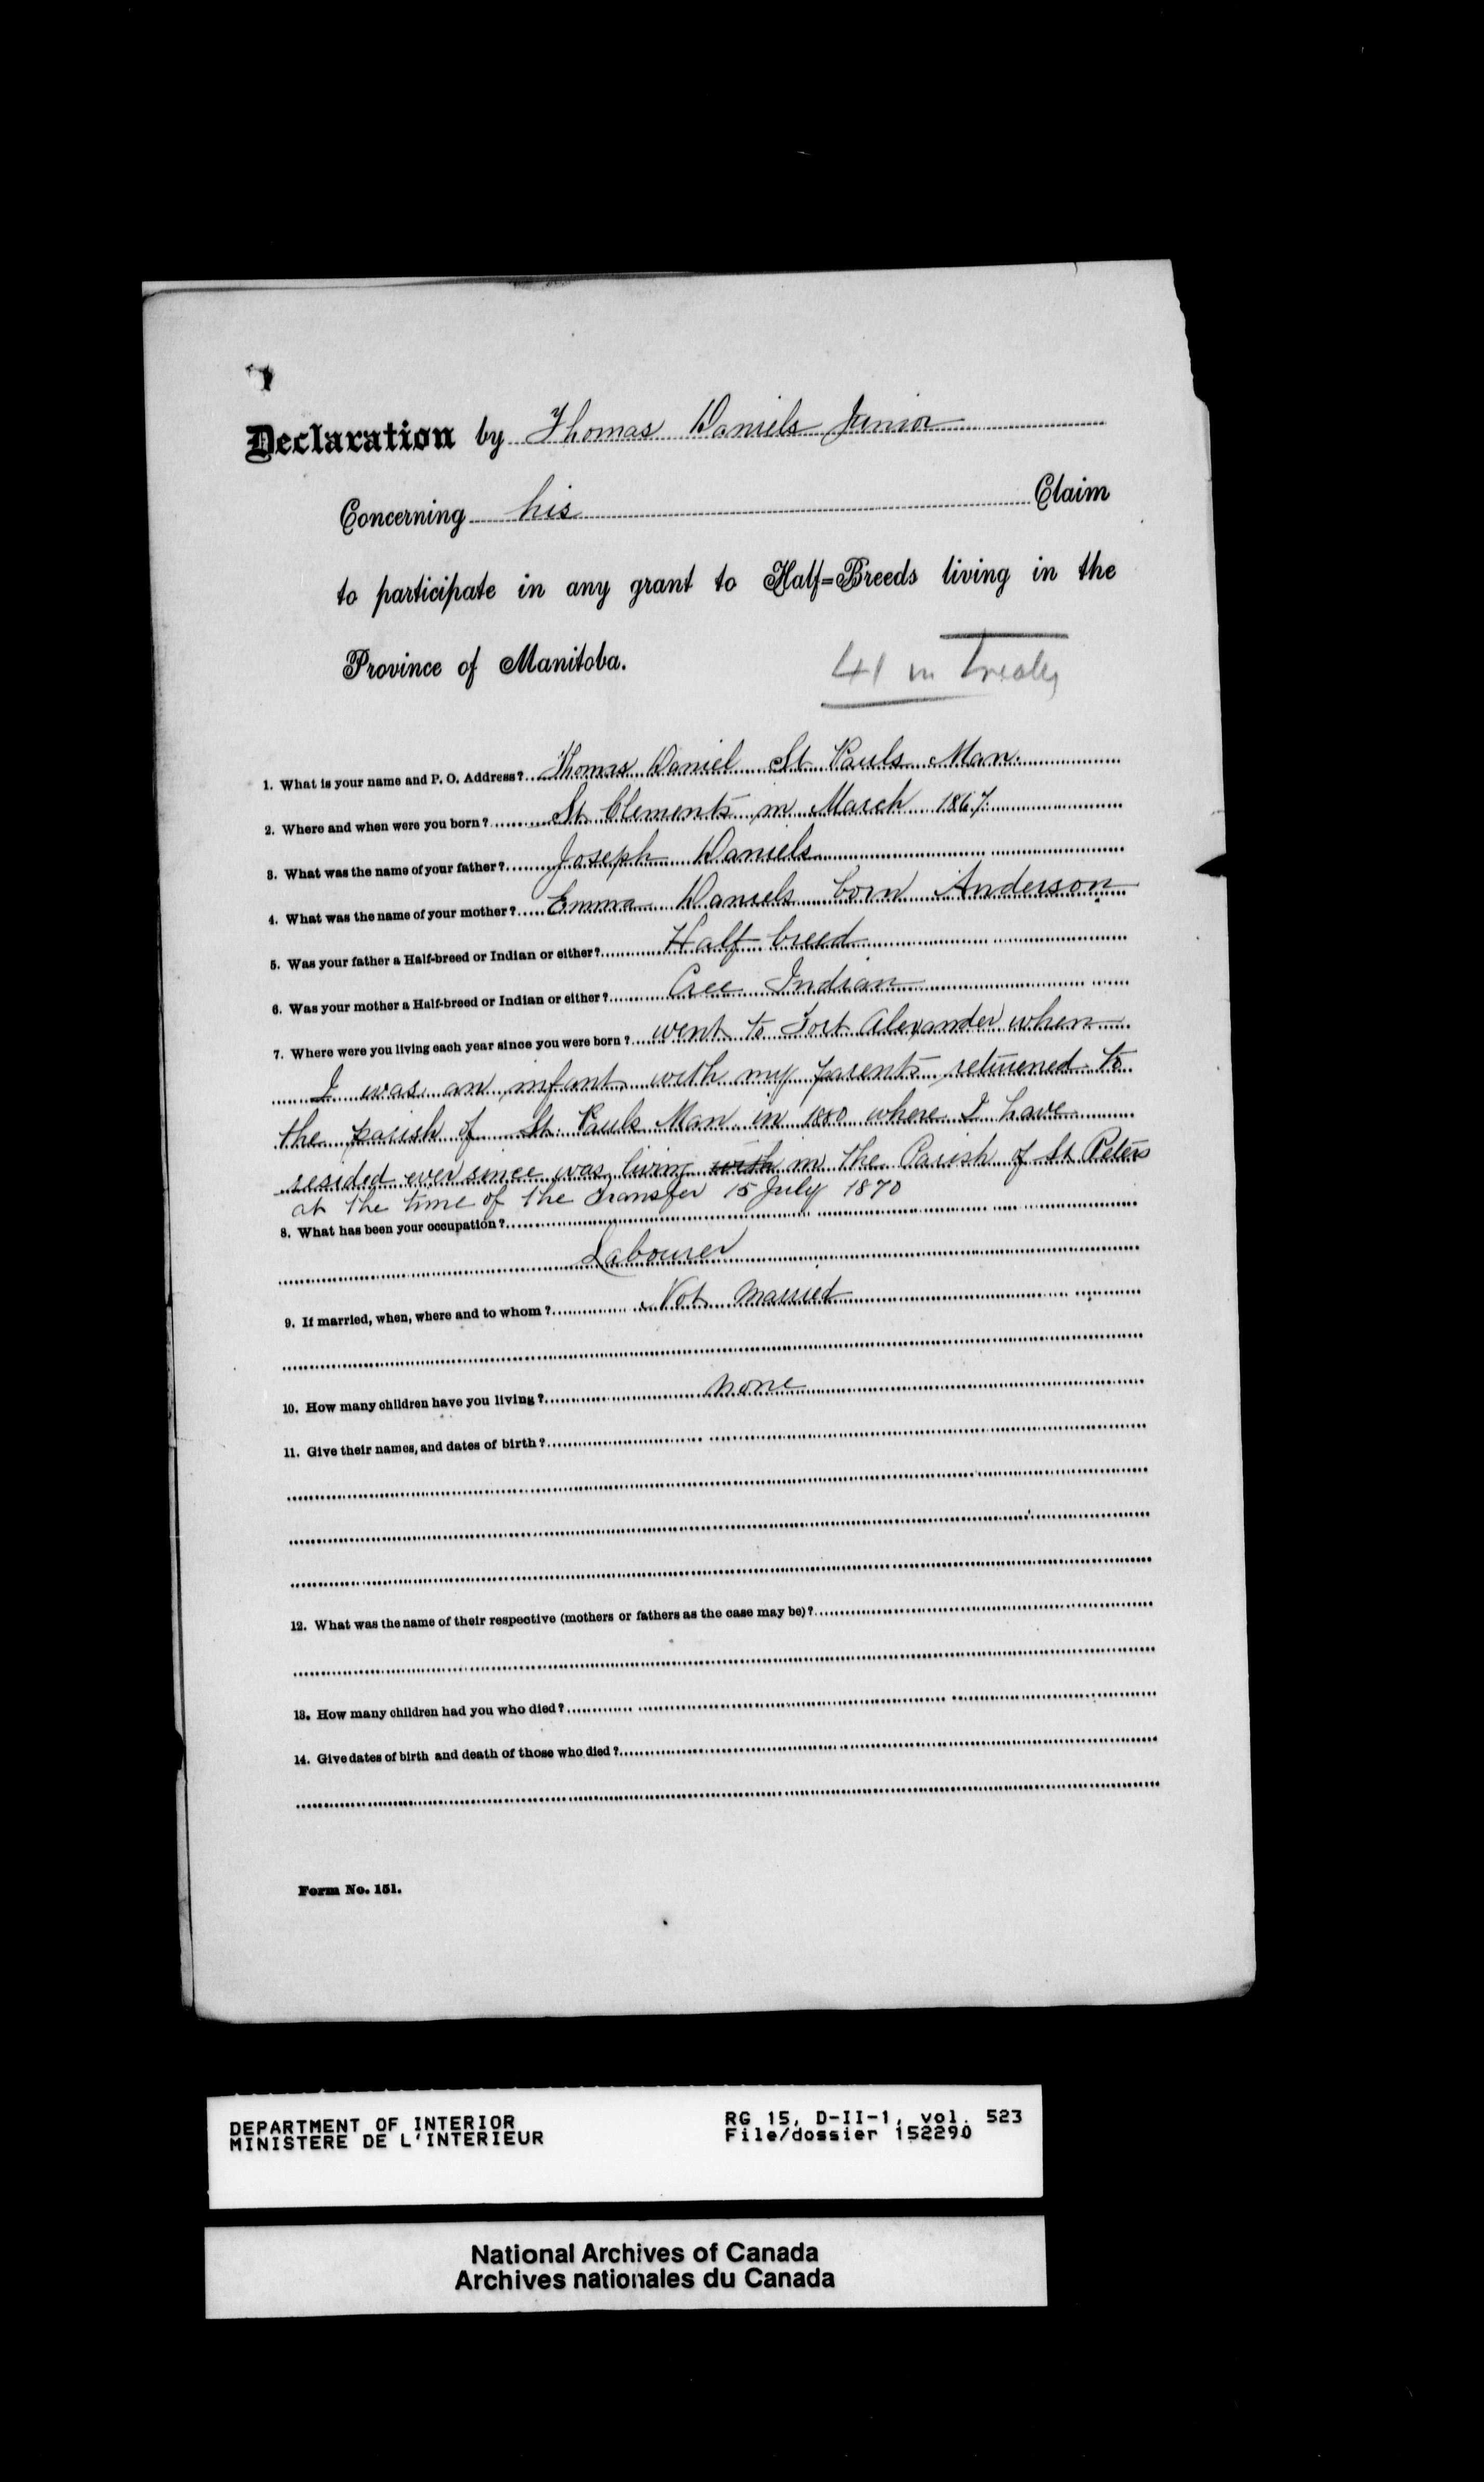 Declaration by Thomas Daniels Junior
Concerning his Claim
to participate in any grant to Half=Breeds living in the
Province of Manitoba.
41 in Treaty
1. What is your name and P. O. Address? Thomas Daniel St Pauls Man.
2. Where and when were you born? St Clements in March 1867.
3. What was the name of your father? Joseph Daniels
4. What was the name of your mother? Emma Daniels born Anderson
5. Was your father a Half-breed or Indian or either? Half breed
6. Was your mother a Half-breed or Indian or either? Cree Indian
7. Where were you living each year since you were born? went to Fort Alexander when
I was an infant with my parents returned to
the parish of St. Pauls Man in 1880 where I have
resided ever since was living with in the Parish of St Peters
at the time of the transfer 15 July 1870
8. What has been your occupation?
Labourer
9. If married, when, where and to whom? Not married
10. How many children have you living? none
11. Give their names, and dates of birth?
12. What was the name of their respective (mothers or fathers as the case may be)?
13. How many children had you who died?
14. Give dates of birth and death of those who died?
Form No. 151.
DEPARTMENT OF INTERIOR RG 15, D-II-1, vol. 523
MINISTERE DE L'INTERIEUR File/dossier 152290
National Archives of Canada
Archives nationales du Canada